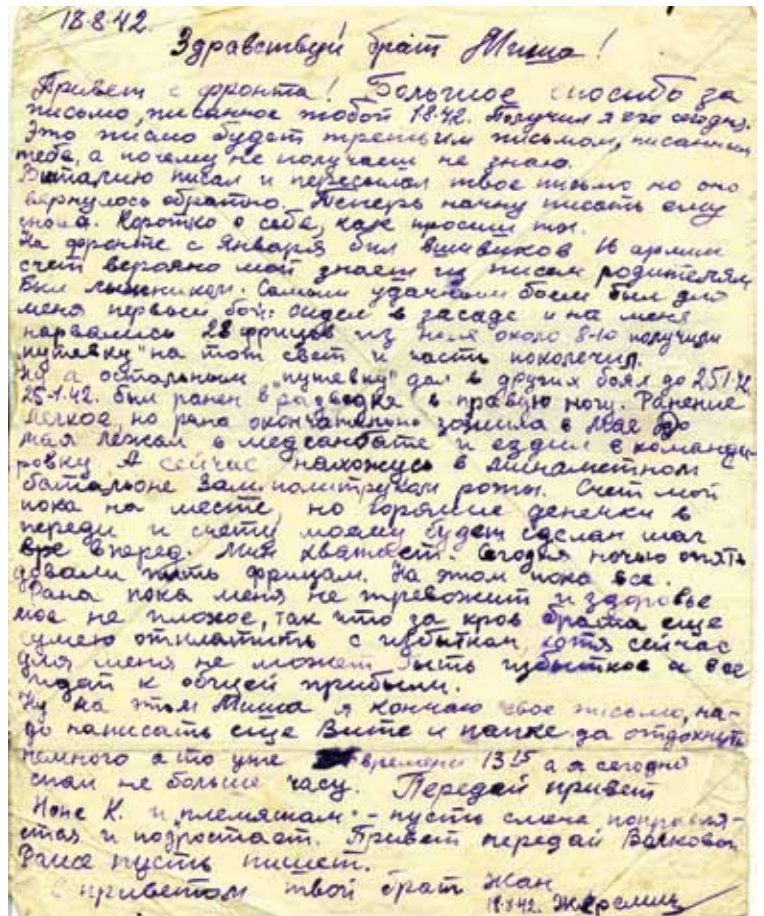 18.8.42.
Здравствуй брат Миша!
Привет с фронта! Большое спосибо за
письмо, писанное тобой 1.8.42. Получил я его сегодня.
Это писмо будет третьим письмом, писанным
тебе, а почему не получаеш не знаю.
Виталию писал и пересылал твое письмо но оно
вернулось обратно. Теперь начну писать ему
снова. Коротко о себе, как просиш ты.
На фронте с января был 16 армии
счет вероятно мой знаеш из писем родителям
Был лыжником. Самым удачным боем был для
меня первый бой: сидел в засаде и на меня
нарвались 28 фрицов из них около 8-10 получили
"путевку" на тот свет и часть поколечил.
Ну а остальным "путевку" дал в других боях до 25.1.42
25.1.42. был ранен в разведке в правую ногу. Ранение
легкое, но рана окончательно зажила в мае до
мая лежал в медсанбате и ездил в команди-
ровку. А сейчас нахожусь в минаметном
баталионе Зам.политруком роты. Счет мой
пока на месте, но горячие денечки в
переди и счету моему будет сделан шаг
вперед. Мин хватает. Сегодня ночью опять
довали жить фрицам. На этом пока все.
Рана пока меня не тревожит и здоровье
мое не плохое, так что за кров брата еще
сумею отплатить с избытком, хотя сейчас
для меня не может быть избытков и все
идет к общей прибыли.
Ну на этом Миша я кончаю свое письмо, на-
до написать еще Вите и папке да отдохнуть
немного а то уже времени 13 15 а я сегодня
спал не больше часу. Передай привет
Ноне К. и племяшам - пусть
и подростает. Привет передай Волковой
Раисе пусть пишет.
С приветом твой брат Жан
18.8.42.